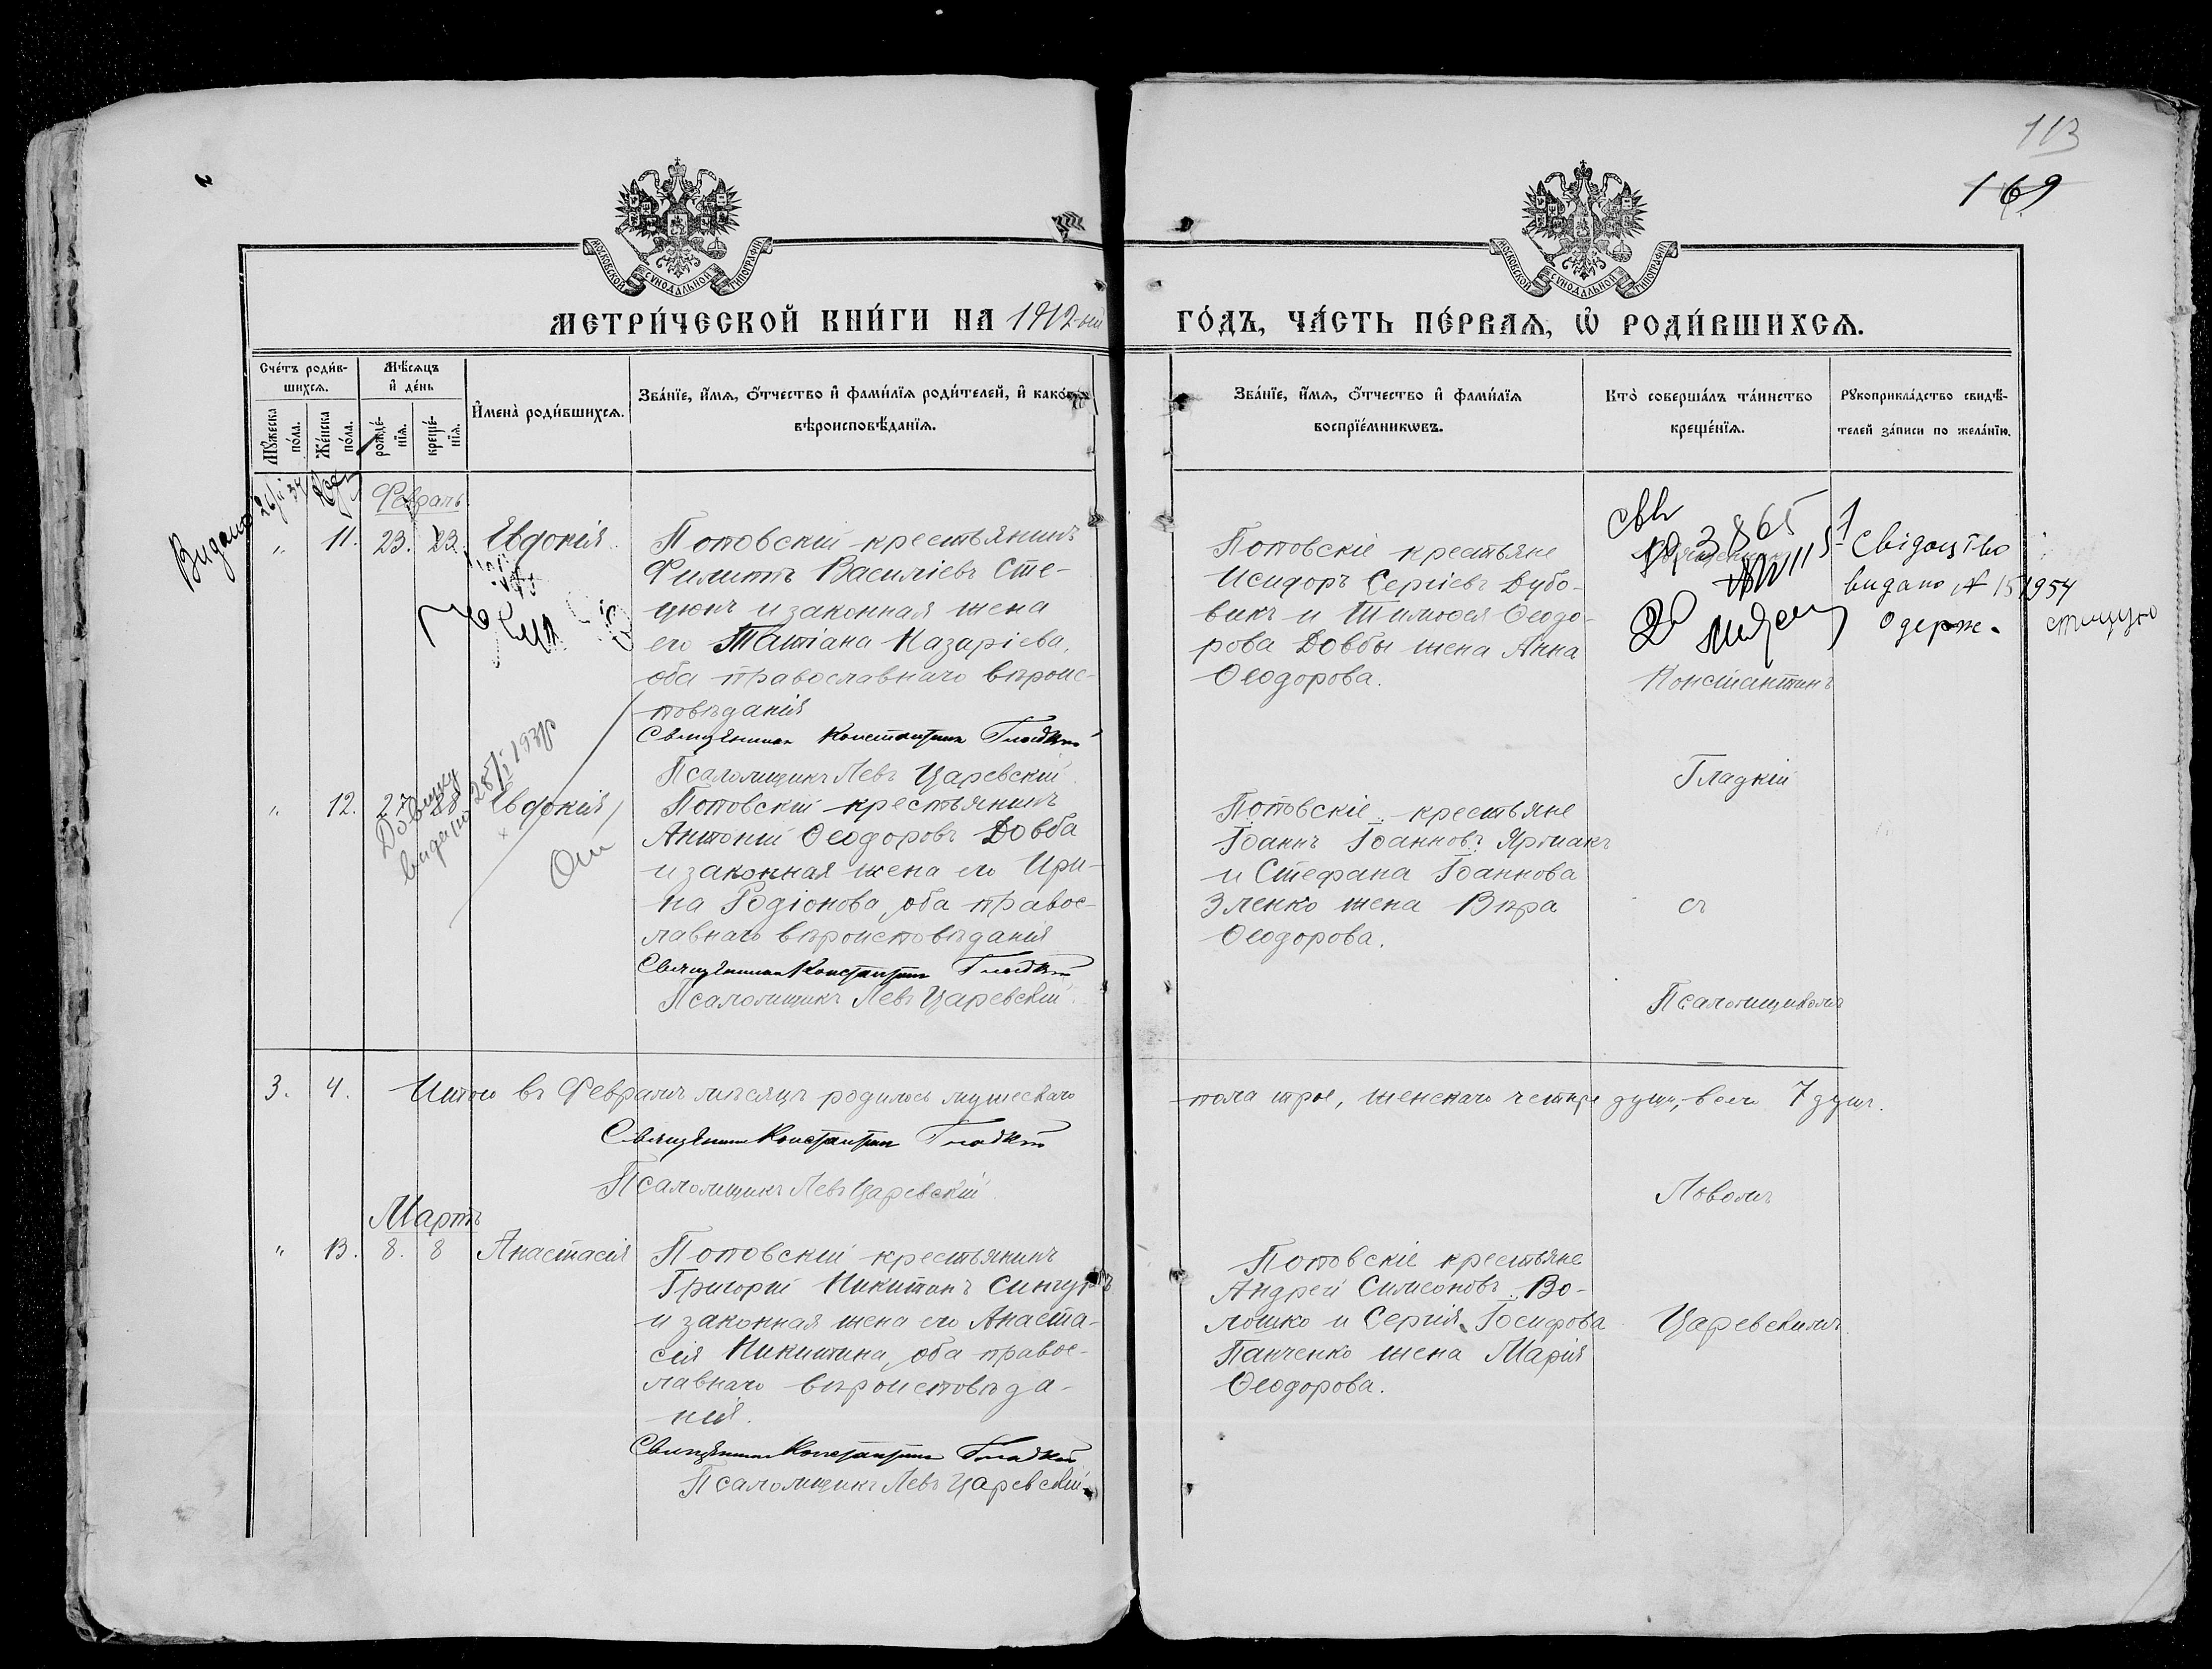 113
169
МОСКОВСКОЙ СѴНОДАЛЬНОЙ ТИПОГРАФІИ
МОСКОВСКОЙ СѴНОДАЛЬНОЙ ТИПОГРАФІИ
МЕТРИ́ЧЕСКОЙ КНИ́ГИ НА 1912-ый
ГО́ДЪ, ЧА́СТЬ ПЕ́РВАѦ, Ѽ РОДИ́ВШИХСѦ.
Сче́тъ роди́в-
шихсѧ.
Мꙋ́жеска по́ла.
Же́нска по́ла.
Мѣ́сѧцъ и҆ де́нь
рожде́-
нїѧ.
креще́-
нїѧ.
И҆мена̀ роди́вшихсѧ.
Зва́нїе, и҆́мѧ, ѻ҆́тчество и҆ фами́лїѧ роди́телей, и҆ како́гѡ
вѣроисповѣ́данїѧ.
Зва́нїе, и҆́мѧ, ѻ҆́тчество и҆ фами́лїѧ
воспрїе́мникѡвъ.
Кто̀ соверша́лъ та́инство
креще́нїѧ.
Рꙋкоприкла́дство свидѣ́-
телей за́писи по жела́нїю.
Видано
Февраль
„ 11. 23. 23. Евдокія.
Поповскій крестьянинъ
Филиппъ Василіевъ Сте-
цюкъ и законная жена
его Татіана Назаріева,
оба православнаго вѣроис-
повѣданія
Священник Константин Гладкій
Псаломщикъ Левъ Царевскій
Поповскіе крестьяне
Исидоръ Сергіевъ Дубо-
викъ и Тимоѳея Ѳеодо-
рова Довбы жена Анна
Ѳеодорова.
Константинъ
Гладкій
съ
Псаломщикомъ
Львомъ
Царевскимъ
Свідоцтво
видано №
одерж.
Довшку
видано 28/ 193
„ 12. 27 28 Евдокія
Поповскій крестьянинъ
Антоній Ѳеодоровъ Довба
и законная жена его Ири-
на Родіонова, оба правос-
лавнаго вѣроисповѣданія
Священник Константин Гладкій
Псаломщикъ Левъ Царевскій.
Поповскіе крестьяне
Іоаннъ Іоанновъ Ярмакъ
и Стефана Іоаннова
Зленко жена Вѣра
Ѳеодорова.
3. 4. Итого въ Февралѣ мѣсяцѣ родилось мужескаго
пола трое, женскаго четыре душъ, всего 7 душъ.
Священник Константин Гладкій
Псаломщикъ Левъ Царевскій.
Мартъ
„ 13. 8. 8 Анастасія
Поповскій крестьянинъ
Григорій Никитинъ Сингуръ
и законная жена его Анаста-
сія Никитина, оба правос-
лавнаго вѣроисповѣда-
нія.
Священник Константин Гладкій
Псаломщикъ Левъ Царевскій.
Поповскіе крестьяне
Андрей Симеоновъ Во-
лошко и Сергія Іосифова
Панченко жена Марія
Ѳеодорова.